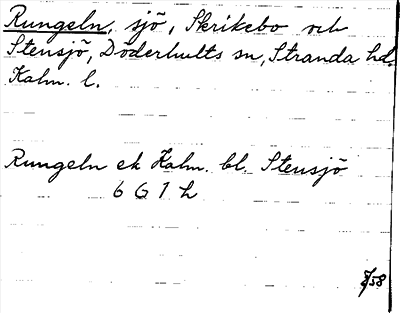 Rungeln, sjö, Skrikebo och
Stensjö, Döderhults sn, Stranda hd.
Kalm. l.
Rungeln ek Kalm. bl. Stensjö
6 G 1 h
8/58